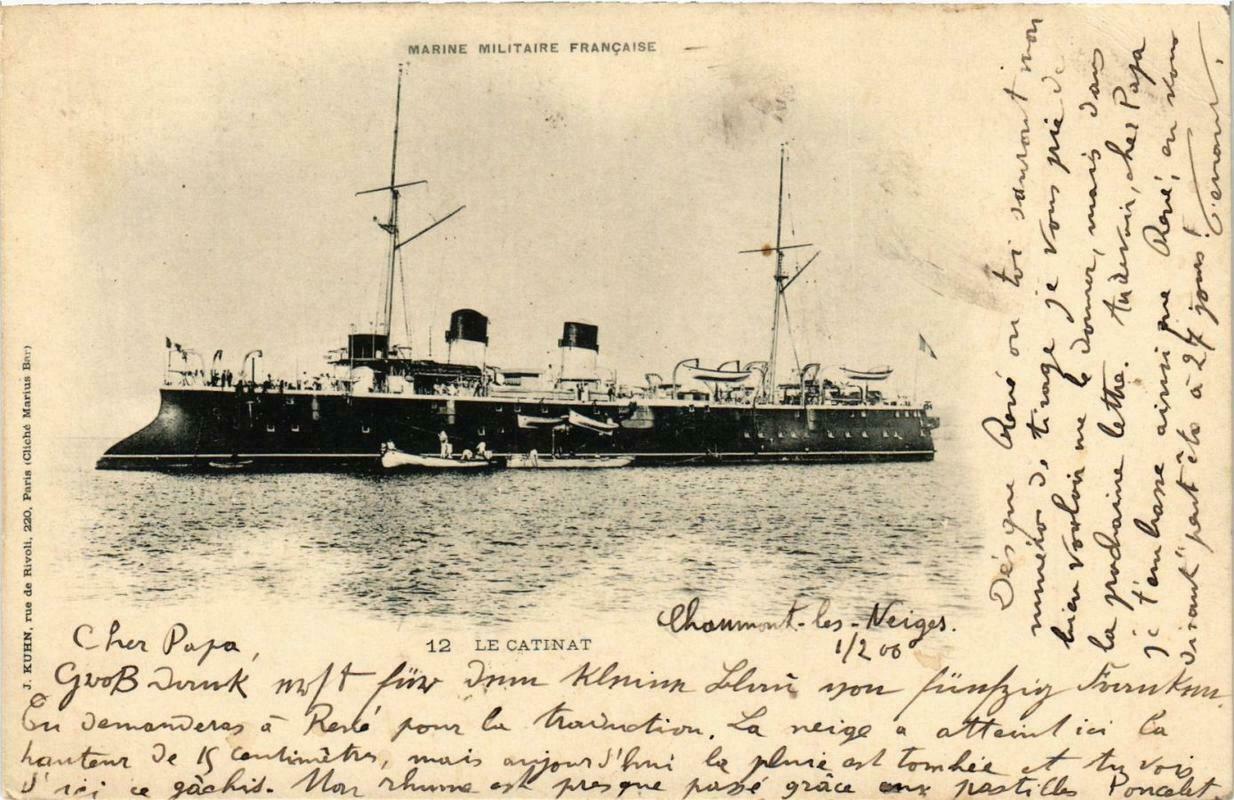 MARINE MILITAIRE FRANÇAISE
J. KUHN, rue de Rivoli, 220, Paris (Cliché Marius Bar)
12 LE CATINAT
Chaumont-les-Neiges.
1/2 00
Cher Papa,
Groß Dank für den kleinen von fünfzig Franken.
Tu demanderas à René pour la traduction. La neige a atteint ici la
hauteur de 15 centimètres, mais aujourd'hui la pluie est tombée et tu vois
d'ici ce gâchis. Mon rhume est presque passé grâce aux pastilles Poncelet
Dès que René ou toi sauront mon
numéro de tirage je vous prie de
bien vouloir me le donner, mais dans
la prochaine lettre. Au revoir, cher Papa
je t'embrasse ainsi que René, en vous
disant "peut être à 27 jours!